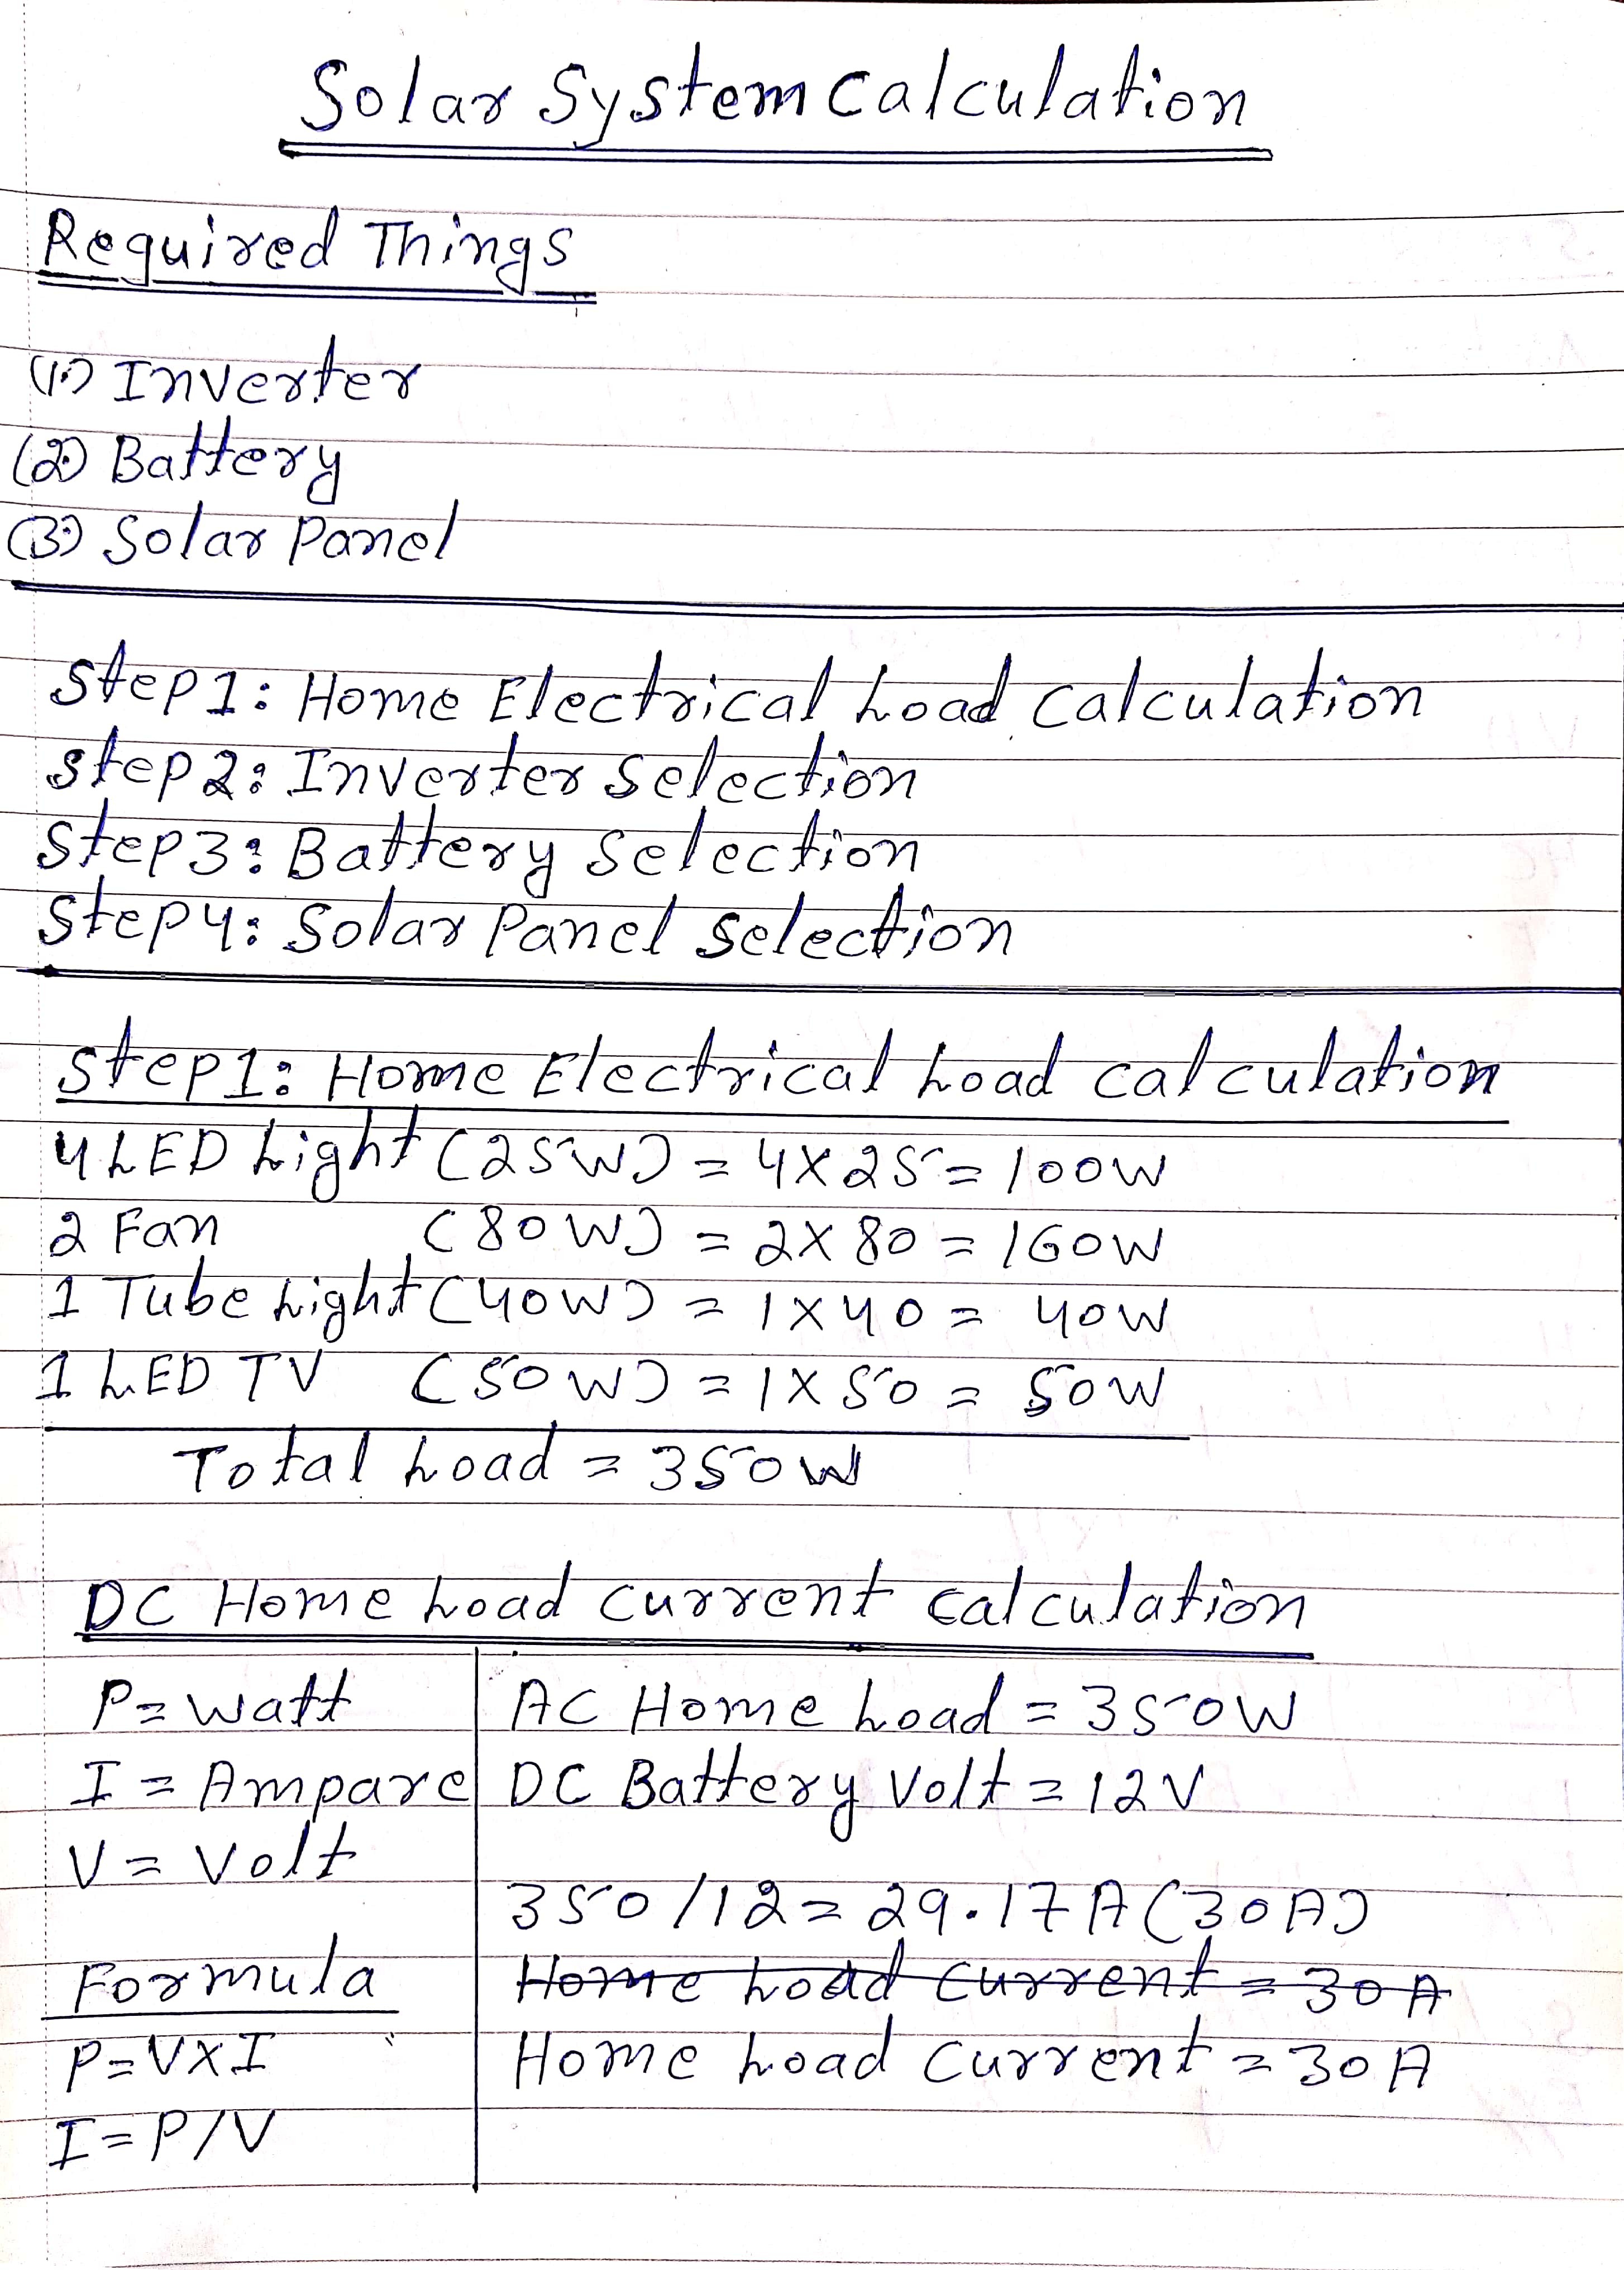 Solar System Calculation
Required Things
(1.) Inverter
(2.) Battery
(3.) Solar Panel
Step 1: Home Electrical Load Calculation
Step 2: Inverter Selection
Step 3: Battery Selection
Step 4: Solar Panel Selection
Step 1: Home Electrical Load Calculation
4 LED Light (25W) = 4X25 = 100W
2 Fan (80W) = 2X80 = 160W
1 Tube Light (40W) = 1X40 = 40W
1 LED TV (50W) = 1X50 = 50W
Total Load = 350W
DC Home Load Current Calculation
P = Watt
I = Ampare
V = Volt
Formula
P = VXI
I = P/V
AC Home Load = 350W
DC Battery Volt = 12V
350/12 = 29.17A (30A)
Home Load Current = 30A
Home Load Current = 30A